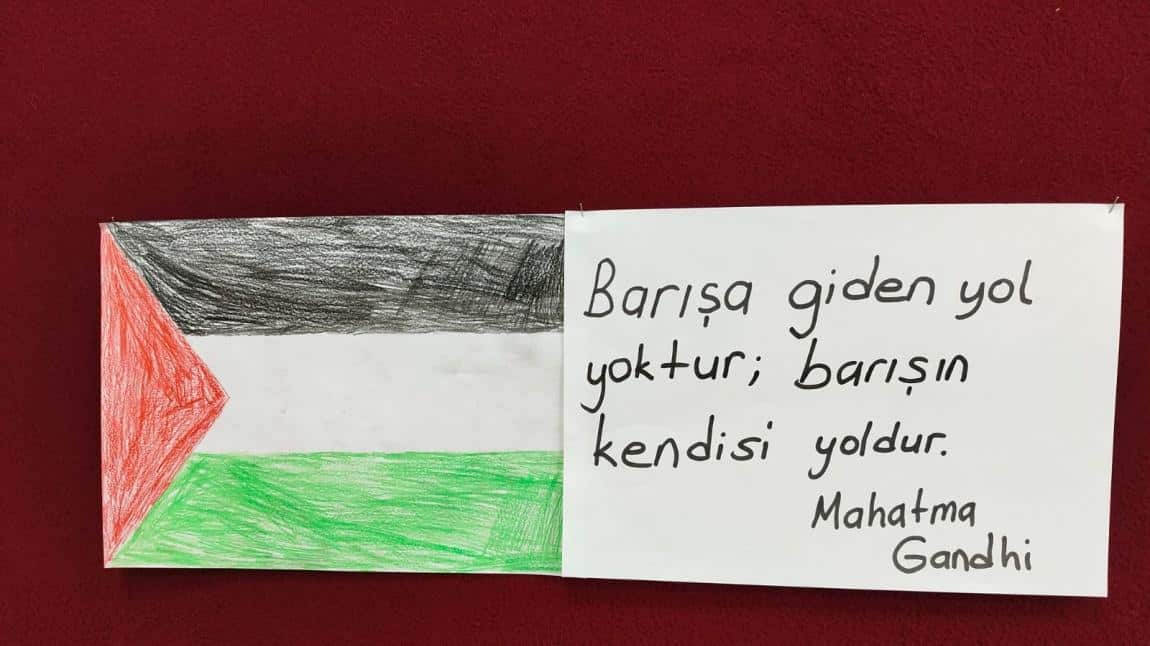 Barışa giden yol
yoktur; barışın
kendisi yoldur.
Mahatma
Gandhi